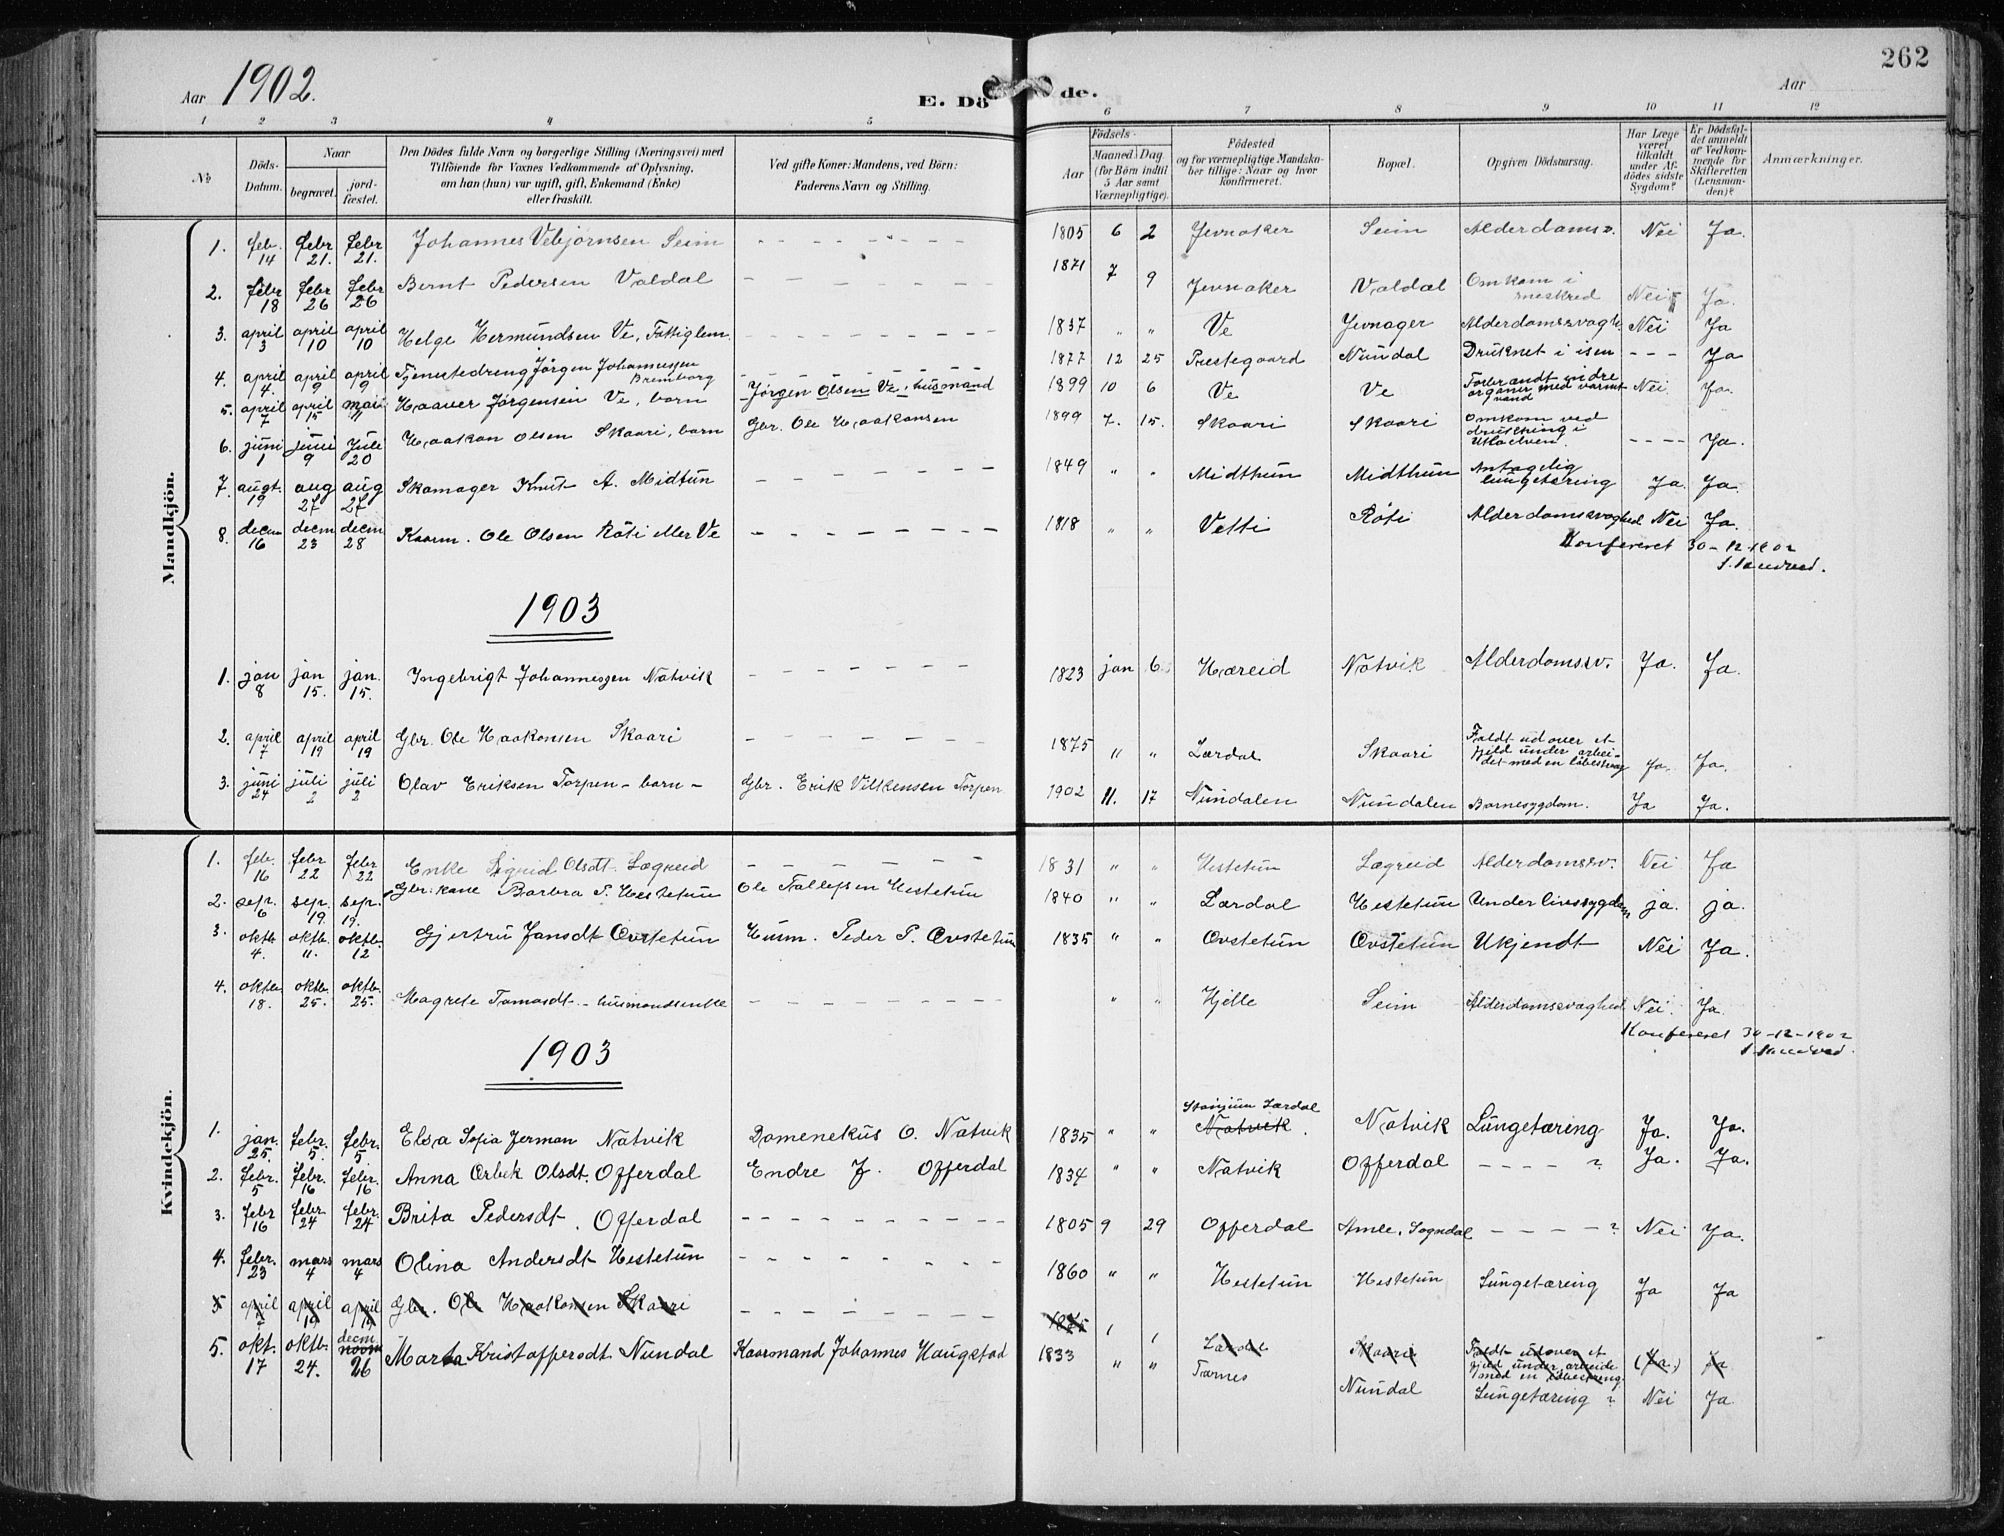 262
Aar 1902.
E. Dö de.
Aar
1 2 3 4 5 6 7 8 9 10 11 12
№
Döds-Datum.
Naar
begravet.
jord-fæstet.
Den Dödes fulde Navn og borgerlige Stilling (Næringsvei) med
Tilföiende for Voxnes Vedkommende af Oplysning,
om han (hun) var ugift, gift, Enkemand (Enke)
eller fraskilt.
Ved gifte Koner: Mandens, ved Börn:
Faderens Navn og Stilling.
Födsels-
Aar
Maaned Dag
(for Börn indtil
5 Aar samt
Værnepligtige).
Födested
og for værnepligtige Mandskaber tillige: Naar og hvor
konfirmeret.
Bopæl.
Opgiven Dödsaarsag.
Har Læge
været
tilkaldt
under Afdödes sidste
Sygdom?
Er Dödsfaldet anmeldt
af Vedkommende for
Skifteretten
(Lensmanden)?
Anmærkninger.
Mandkjön.
1. feb. 14 febr 21. febr 21. Johannes Vebjørnsen Seim - - - 1805 6 2 Jevnaker Seim Alderdomsv. Nei Ja.
2. febr 18 febr 26 febr 26 Bernt Pedersen Valdal - - - 1871 7 9 Jevnaker Valdal Omkom i sneskred Nei Ja.
3. april 3 april 10 april 10 Helge Hermundsen Ve, Fattiglem. - - - 1837 " " Ve Jevnager Alderdomssvagh. Nei Ja
4. april 4. april 9 april 9 Tjenestedreng Jørgen Johannessen Bremborg - - - 1877 12 25 Prestegaard Nundal Druknet i isen - - - Ja
5. april 7 april 15 mai Haaver Jørgensen Ve, barn Jørgen Olsen Ve, husmand 1899 10 6 Ve Ve Forbrændt indre organer med varmt vand Nei Ja.
6. juni 1 juni 9 juli 20 Haakon Olsen Skaari, barn Gbr. Ole Haakonsen 1899 7. 15. Skaari Skaari Omkom ved drukning i Utlaelven - - - - Ja.
7. augt. 19 aug 27 aug 27 Skomager Knut A. Midtun - - - 1849 " " Midthun Midthun Antagelig lungetæring Ja. Ja.
8. decm 16 decm 23 decm 28 Kaarm. Ole Olsen Röti eller Ve - - - 1818 " " Vetti Röti Alderdomssvaghed Nei Ja.
Konfereret 30-12-1902
1903
1. jan 8 jan 15. jan. 15. Ingebrigt Johannessen Natvik - - - 1823 jan 6. Hæreid Natvik Alderdomssv. Ja. Ja.
2. april 7 april 19 april 19 Gbr. Ole Haakonsen Skaari - - - 1875 " " Lærdal Skaari Faldt udover et fjeld under arbeidet med en løbestræng Ja. Ja.
3. juni 24 juli 2 juli 2 Olav Eriksen Torpen - barn - Gbr. Erik Vilkensen Torpen 1902 11. 17 Nundalen Nundalen Barnesygdom. Ja Ja.
Kvindekjön.
1. feb. 16 febr 22 febr 22 Enke Sigrid Olsdt. Lægreid - - - 1831 " " Hestetun Lægreid Alderdomssv. Nei Ja
2. sep. 6 sep. 19 sep. 19. Gbr. kone Barbra P. Hestetun Ole Tollefsen Hestetun 1840 " " Lærdal Hestetun Underlivssygdom ja. ja.
3. oktb. 4. oktb. 11. oktb. 12 Gjertru Jansdt Ovstetun Husm. Peder P. Øvstetun 1835 " " Øvstetun Øvstetun Ukjendt Nei Ja.
4. oktb. 18. oktb. 25. oktb. 25. Magrete Tomasdt. - husmandsenke - - - " " Hjelle Seim Alderdomssvaghed Nei. Ja.
Konfereret 30-12-1902
1903
1. jan. 25. febr. 5. febr. 5 Elsa Sofia Jerman Natvik Domenekus O. Natvik 1835 " " Lærdal Natvik. Natvik Lungetæring Ja. Ja.
2. febr. 5 febr. 16 febr. 16 Anna Ørbek Olsdt. Offerdal Endre J. Offerdal 1834 " " Natvik Offerdal - - - - ? Ja. Ja.
3. febr 16 febr 24 febr. 24 Brita Pedersdt. Offerdal - - - 1805 9 29 Offerdal Amle, Sogndal - - - ? Nei Ja.
4. febr. 23 mars 4 mars 4 Olina Andersdt Hestetun - - - 1860 " " Hestetun Hestetun Lungetæring Ja Ja
5 april 7 april 19 april 19 Gbr. Ole Haakonsen Skaari - - - 1875 Lærdal Skaari Faldt udover et fjeld under arbeide med en løbestreng. (Ja.) Ja
5. okt. 17 oktb. 24. novm decm. 26 Marta Kristoffersdt Nundal Kaarmand Johannes Haugstad 1833 " " Tærnes Nundal Lungetæring ? Nei Ja.